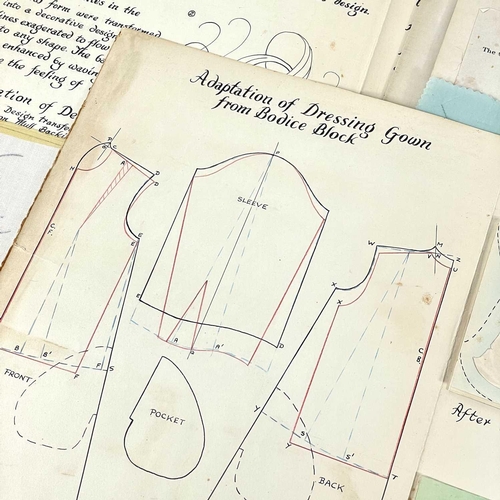 in the
design.
form were transformed
into a decorative design
lines exagerated to flow
to any shape. The
enhanced by waving
the feeling of
ation of De
Design transfe
on Mull Backi
The
Adaptation of Dressing Gown
from Bodice Block
SLEEVE
FRONT
POCKET
BACK
After